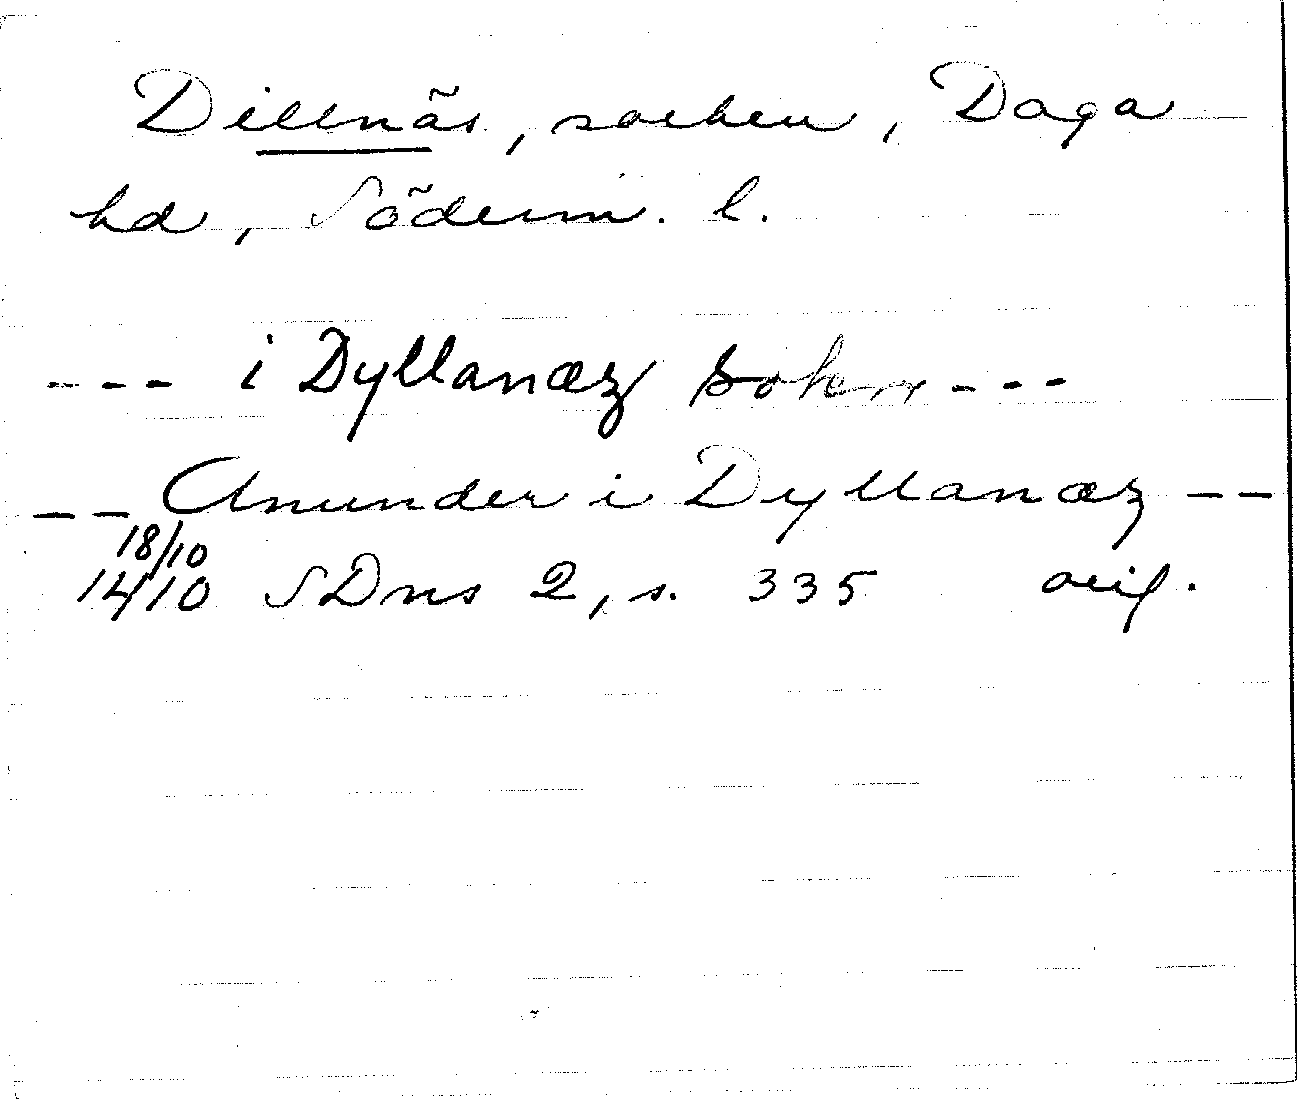 Dillnäs, socken, Daga
hd, Söderm. l.
--- i Dyllanæz sokn ---
-- Anunder i Dyllanæz --
18/10
1410 SDns 2, s. 335 orig.